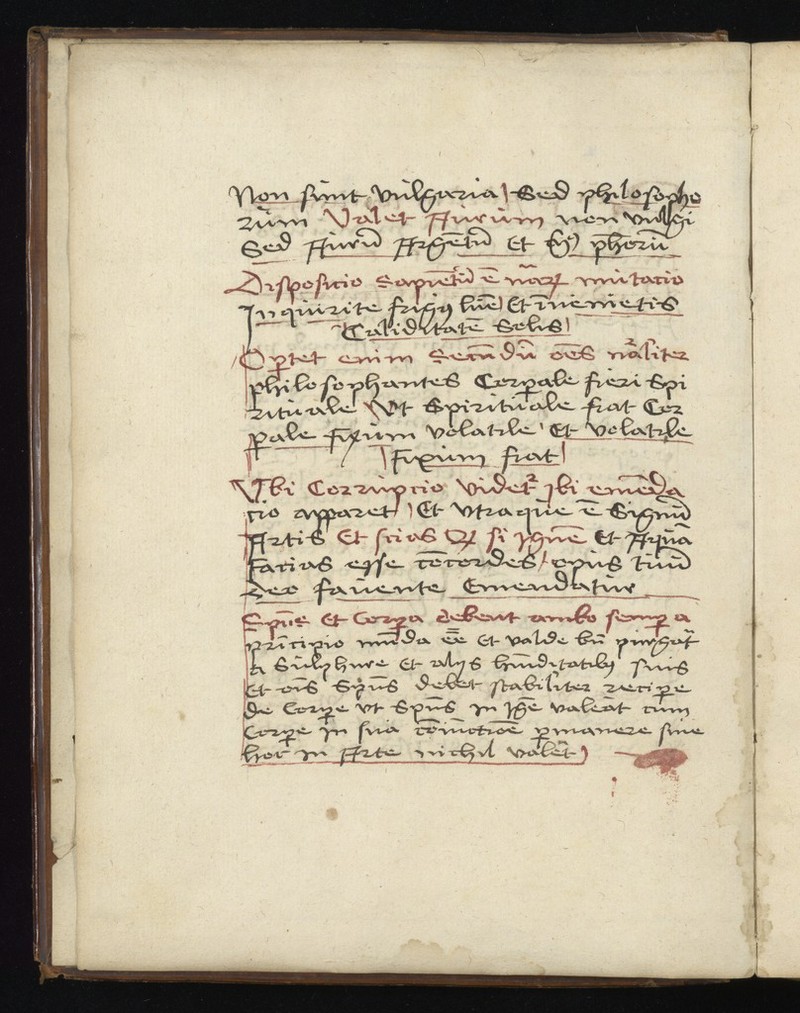 Non sunt vulgaria Sed philosopho
rum Valet Aurum non vulgi
Sed Aurū Argētū Et phorū
Dispositio Sapiētū ē mutacio
Inquirite frigus lunē Et inuenietis
Caliditatē Solis
Oportet enim Secūdū oēs nāliter
philosophantes Corporale fieri Spi
rituale Vt Spirituale fiat Cor
porale fixum volatile Et volatile
Fixum fiat
Vbi Corrupcio videtr Ibi emēda
cio apparet Et vtraque ē Signū
Artis Et scias si Ignē Et Aquā
Facias esse cōcordes opus tuū
deo fauente Emendatur
Spūs Et Corpora debent ambo semper a
prīcipio mūda eē Et valde bn̄ purgāt
a Sulphure Et alijs hūiditatibus suis
Et oīs Spūs debet stabiliter recipere
de Corpore vt Spūs in Igne valeāt cum
Corpore in sua cōiūctiōe permanere sine
hoc in Arte nichil valēt